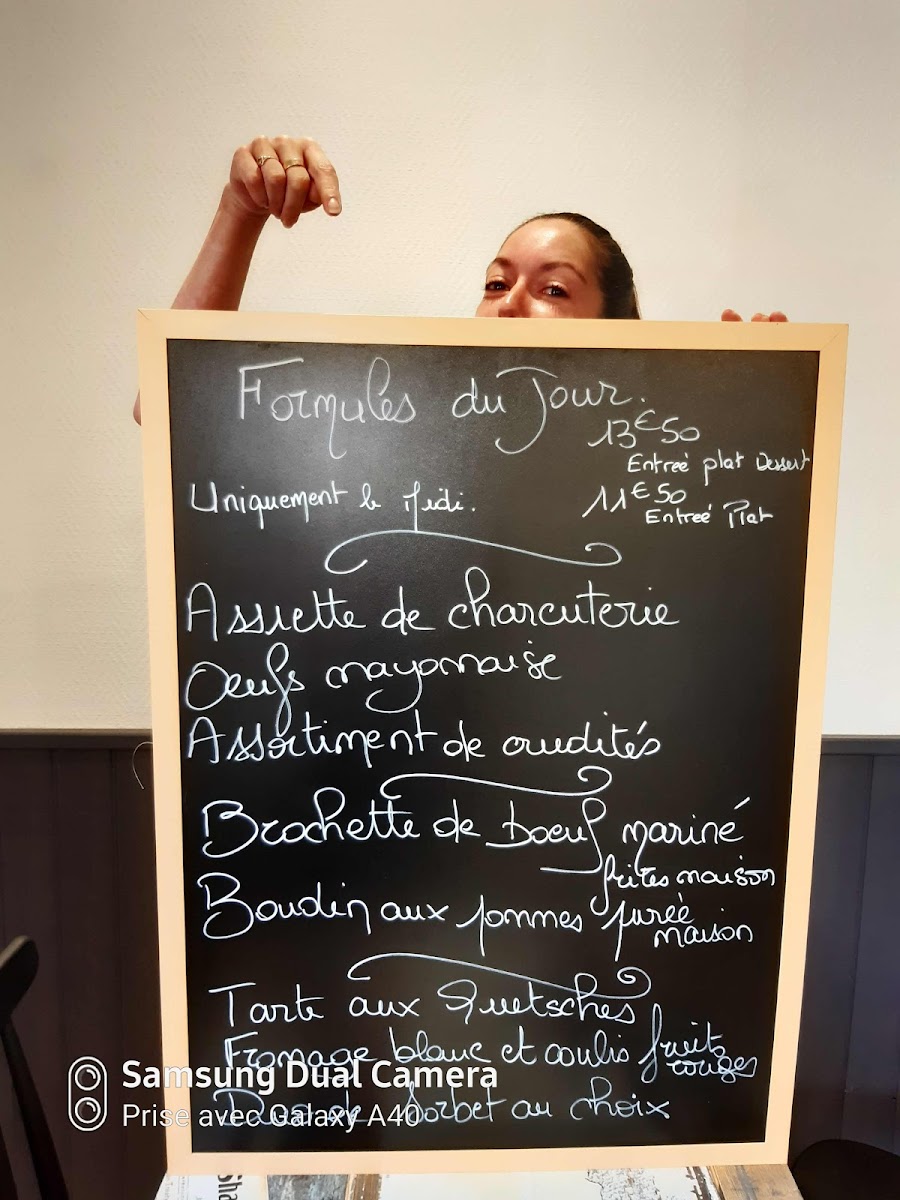 Formules du Jour.
13€50
Entreé plat Dessert
Uniquement le Midi.
11€50
Entreé Plat
Assiette de charcuterie
Oeufs mayonnaise
Assortiment de crudités
Brochette de boeuf mariné
frites maison
Boudin aux pommes purée
maison
Tarte aux Quetsches
Fromage blanc et coulis fruits
rouges
Sorbet au choix
Samsung Dual Camera
Prise avec Galaxy A40